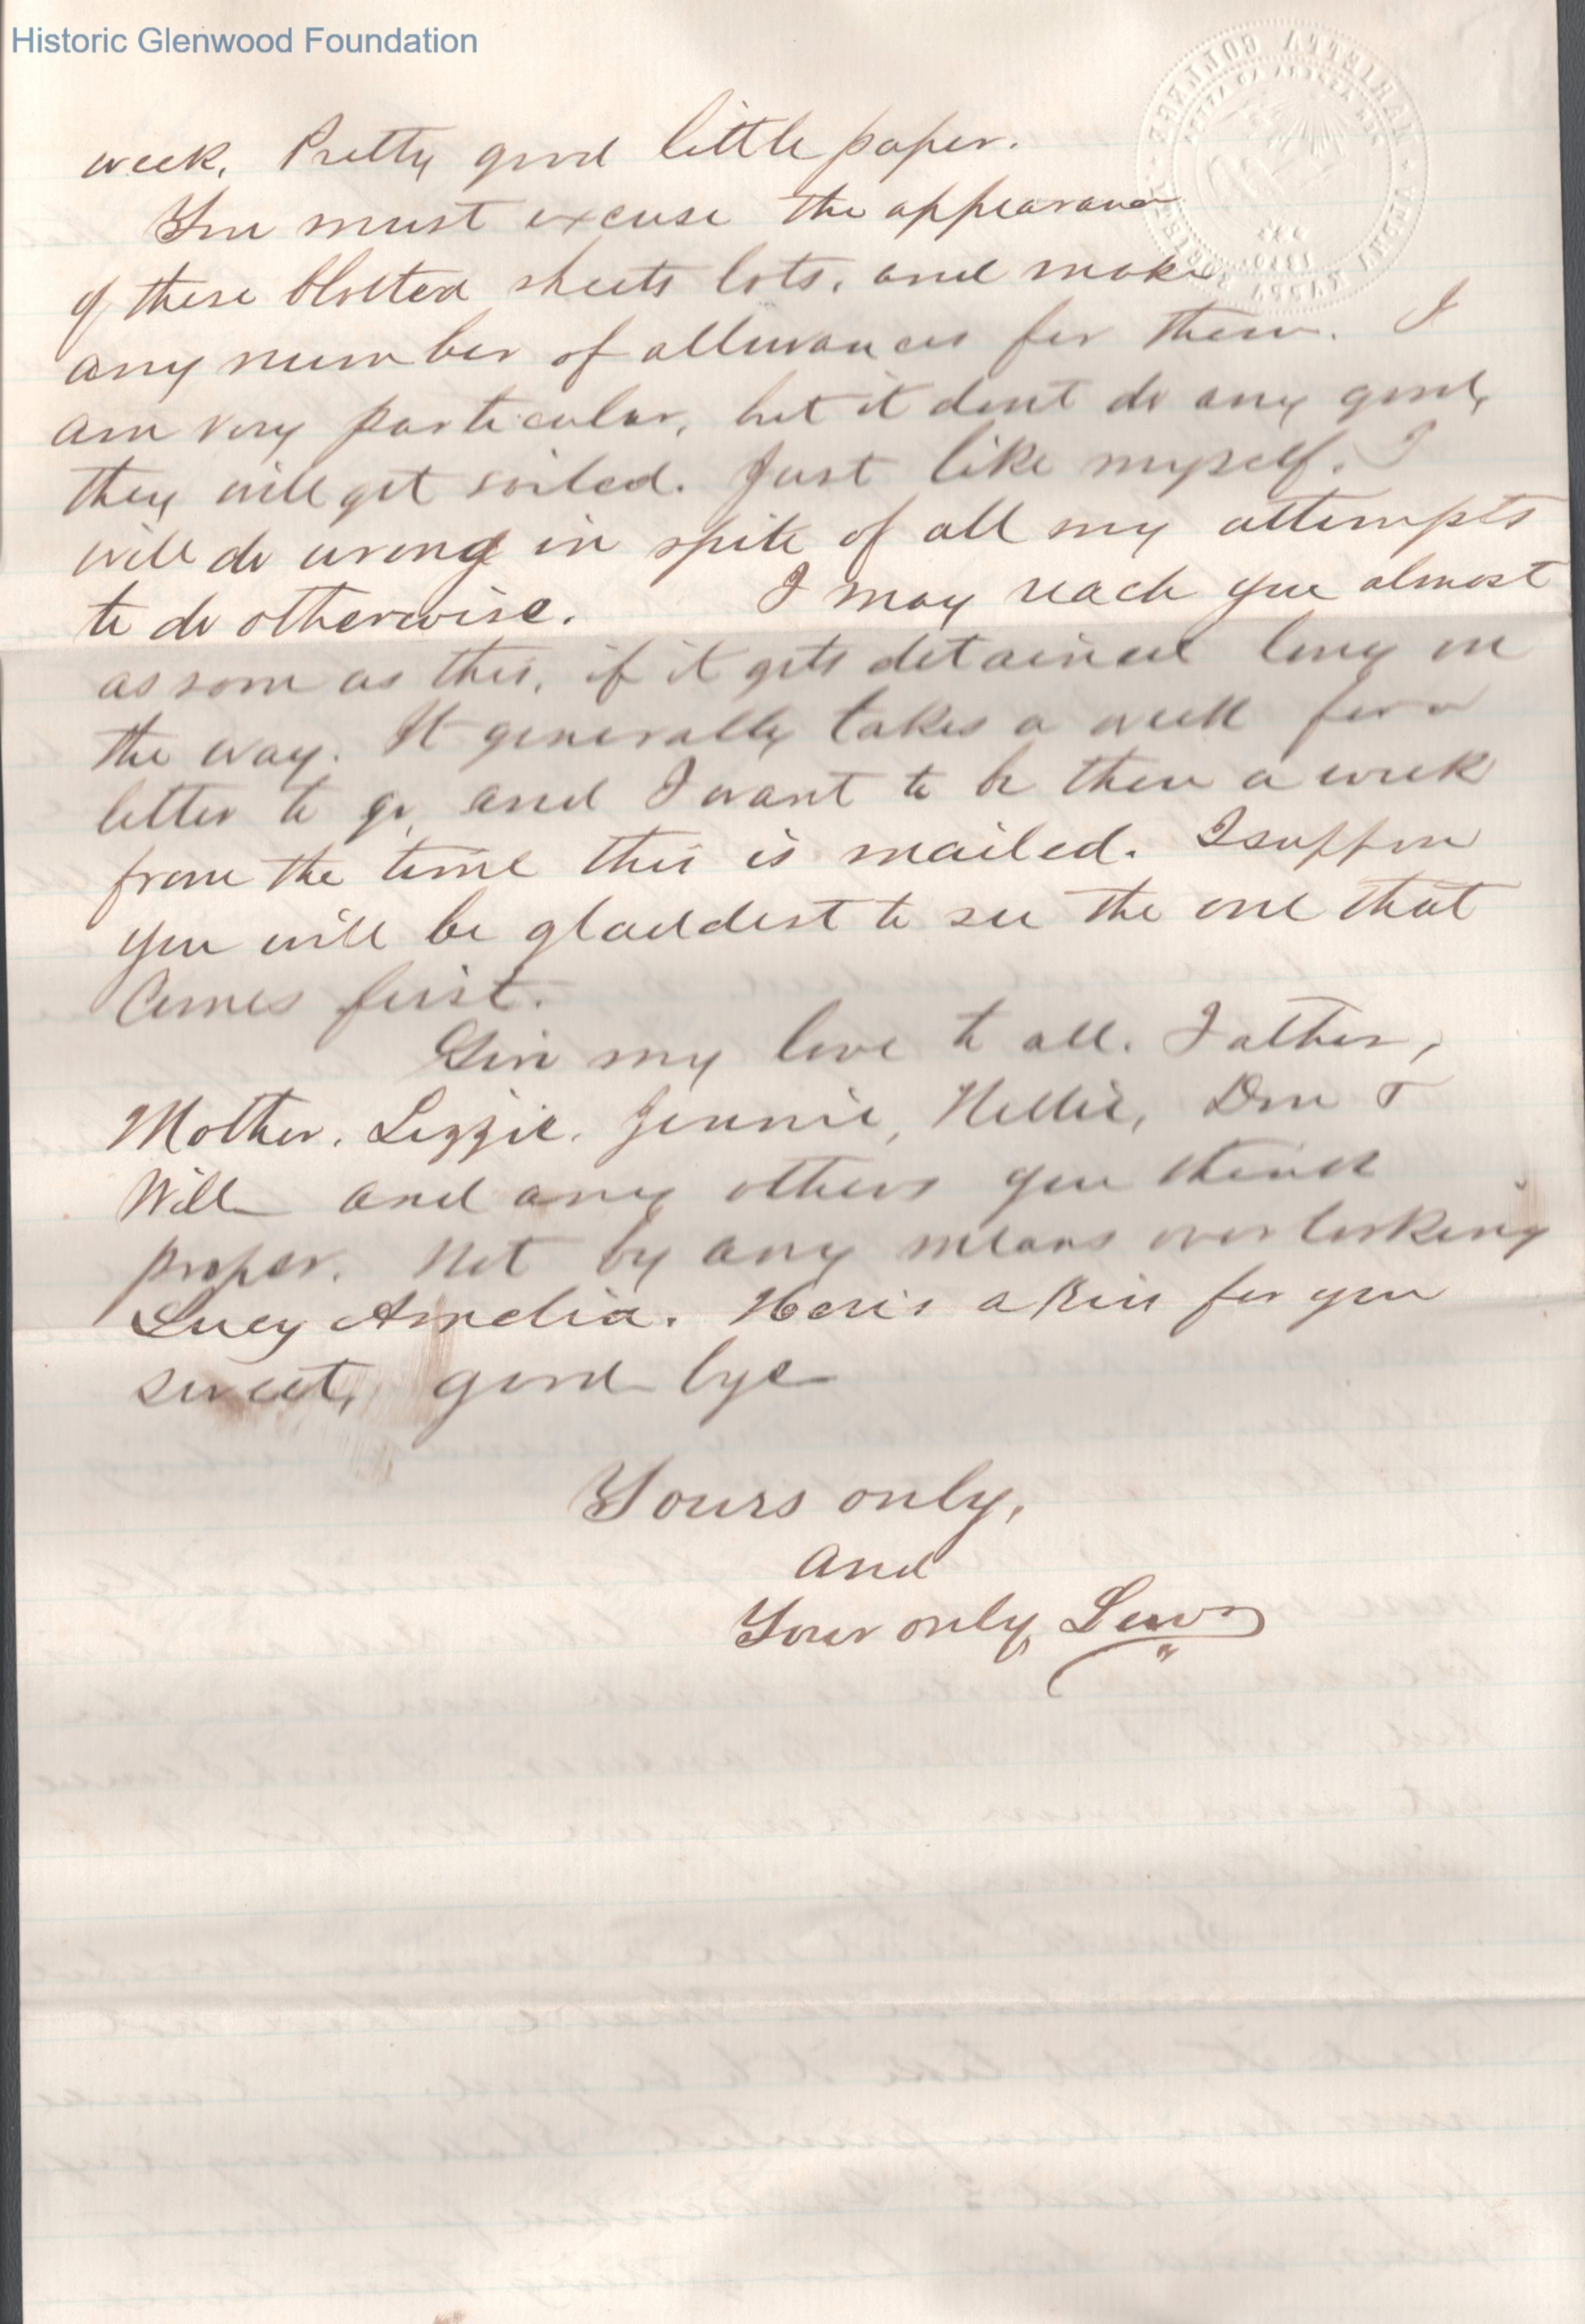 Historic Glenwood Foundation
week. Pretty good little paper.
You must excuse the appearance
of these blotted sheets lots, and make
any number of allowances for them. I
am very particular, but it dont do any good,
they will get soiled. Just like myself. I
will do wrong in spite of all my attempts
to do otherwise. I may reach you almost
as soon as this, if it gets detained long on
the way. It generally takes a week for a
letter to go, and I want to be there a week
from the time this is mailed. I suppose
you will be gladdest to see the one that
Comes first.
Give my love to all. Father,
Mother, Lizzie, Jennie, Nellie, Don &
Will and any others you think
proper. Not by any means overlooking
Lucy Amelia. Here's a kiss for you
sweet, good bye
Yours only,
and
Your only, Lew